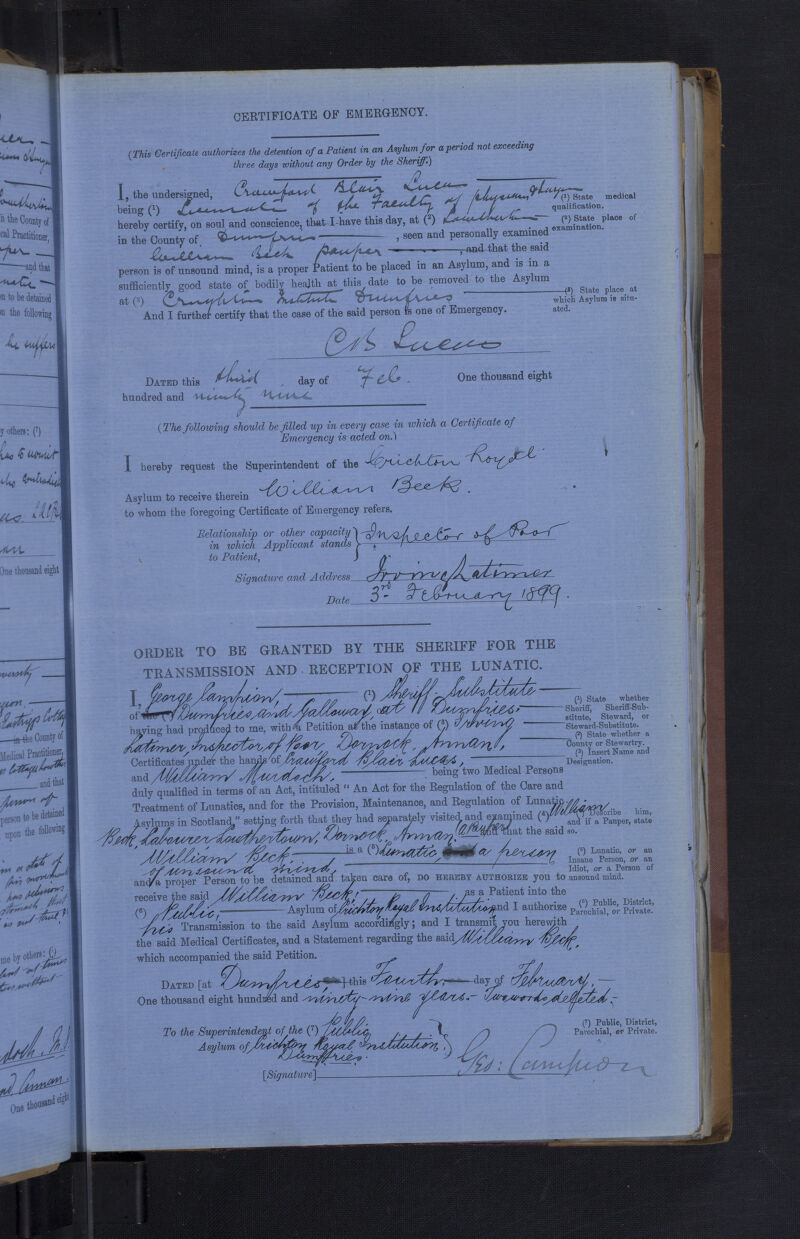 CERTIFICATE OF EMERGENCY.
(This Certificate authorizes the detention of a Patient in an Asylum for a period not exceeding
three days without any Order by the Sheriff.)
I, the undersigned, Crawford Blair Lucas
being (¹) Licentiate of the Faculty of Physicians & Surgeons
(¹) State medical
qualification.
hereby certify, on soul and conscience, that I have this day, at (²) Lowthertown
(²) State place of
examination.
in the County of Dumfries, seen and personally examined
William Beck pauper, and that the said
person is of unsound mind, is a proper Patient to be placed in an Asylum, and is in a
sufficiently good state of bodily health at this date to be removed to the Asylum
at (³) Crichton Institute Dumfries
(³) State place at
which Asylum is situ-
ated.
And I further certify that the case of the said person is one of Emergency.
CB Lucas
DATED this third day of Feb. One thousand eight
hundred and ninety nine
(The following should be filled up in every case in which a Certificate of
Emergency is acted on.)
I hereby request the Superintendent of the Crichton Royal
Asylum to receive therein William Beck.
to whom the foregoing Certificate of Emergency refers.
Relationship or other capacity
in which Applicant stands
to Patient,
} Inspector of Poor
Signature and Address Irving Latimer
Date 3rd February 1899.
ORDER TO BE GRANTED BY THE SHERIFF FOR THE
TRANSMISSION AND RECEPTION OF THE LUNATIC.
I, George Campion, (¹) Sheriff-Substitute
of the (²) Dumfries and Galloway, at Dumfries
(¹) State whether
Sheriff, Sheriff-Sub-
stitute, Steward, or
Steward-Substitute.
having had produced to me, with a Petition at the instance of (³) Irving
(²) State whether a
County or Stewartry.
Latimer, Inspector of Poor, Dornock, Annan,
(³) Insert Name and
Designation.
Certificates under the hands of Crawford Blair Lucas,
and William Murdoch, being two Medical Persons
duly qualified in terms of an Act, intituled "An Act for the Regulation of the Care and
Treatment of Lunatics, and for the Provision, Maintenance, and Regulation of Lunatic
Asylums in Scotland," setting forth that they had separately visited and examined (⁴) William
(⁴) Describe him,
and if a Pauper, state
so.
Beck, Labourer Lowthertown, Dornock, Annan, a Pauper and that the said
William Beck is a (⁵) Lunatic, a person
of unsound mind,
(⁵) Lunatic, or an
Insane Person, or an
Idiot, or a Person of
unsound mind.
and a proper Person to be detained and taken care of, DO HEREBY AUTHORIZE you to
receive the said William Beck, as a Patient into the
(⁶) Public, Asylum of Crichton Royal Institution and I authorize
(⁶) Public, District,
Parochial, or Private.
his Transmission to the said Asylum accordingly; and I transmit you herewith
the said Medical Certificates, and a Statement regarding the said William Beck,
which accompanied the said Petition.
DATED [at Dumfries] this Fourth day of February,
One thousand eight hundred and ninety-nine years. Two words deleted.
To the Superintendent of the (⁷) Public
Asylum of Crichton Royal Institution,
Dumfries.
(⁷) Public, District,
Parochial, or Private.
[Signature] Geo: Campion